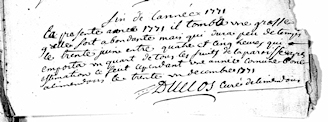 fin de l'année 1771
la presente année 1771 il tomba une grosse
grelle fort abondante mais qui dura peu de temps
le trente juin entre quatre et cinq heures qui
emporta un quart de tous les fruits de la paroisse
le peut cependant une année comune
le trente un decembre 1771
DUCLOS Curé